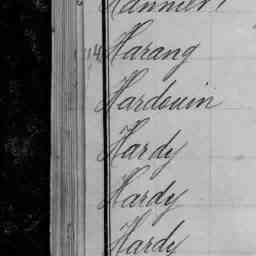 Harang
Hardouin
Hardy
Hardy
Hardy